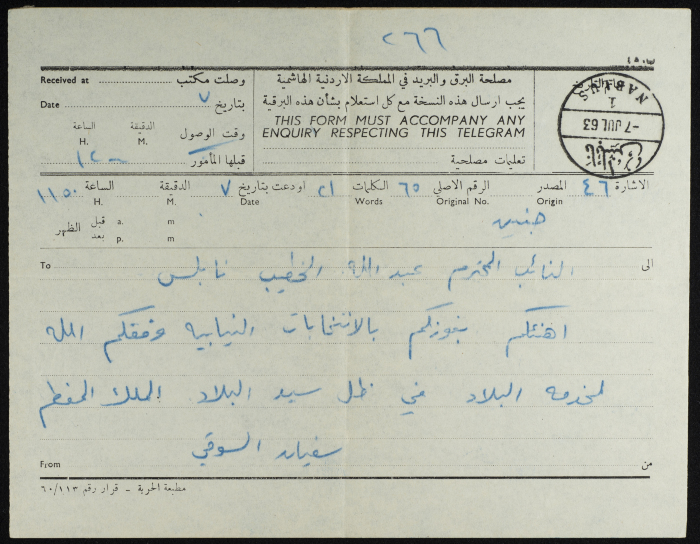 ٢٦٦
Received at وصلت مكتب
Date ٧ بتاريخ
الساعة الدقيقة وقت الوصول
H. M.
قبلها المأمور
مصلحة البرق والبريد في المملكة الاردنية الهاشمية
يجب ارسال هذه النسخة مع كل استعلام بشأن هذه البرقية
THIS FORM MUST ACCOMPANY ANY
ENQUIRY RESPECTING THIS TELEGRAM
تعليمات مصلحية
NABLUS
1
-7 JUL 63
نابلس
الاشارة ٤٦ المصدر الرقم الاصلي ٦٥ الكلمات ٢١ اودعت بتاريخ ٧ الدقيقة الساعة ١١٥٠
Origin Original No. Words Date M. H.
جنين
الظهر قبل a. m
بعد p. m
To الى
النائب المحترم عبد الله الخطيب نابلس
اهنئكم بفوزكم بالانتخابات النيابيه وفقكم الله
لخدمه البلاد في ظل سيد البلاد الملك المعظم
سفيان
From من
مطبعة الحرية - قرار رقم ٦٠/١١٣